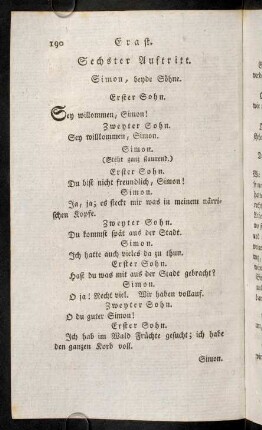 190 Erast.
Sechster Auftritt.
Simon, beyde Söhne.
Erster Sohn.
Sey willkommen, Simon!
Zweyter Sohn.
Sey willkommen, Simon.
Simon.
(Steht ganz staunend.)
Erster Sohn.
Du bist nicht freundlich, Simon!
Simon.
Ja, ja; es steckt mir was in meinem närri-
schen Kopfe.
Zweyter Sohn.
Du kommst spät aus der Stadt.
Simon.
Ich hatte auch vieles da zu thun.
Erster Sohn.
Hast du was mit aus der Stadt gebracht?
Simon.
O ja! Recht viel. Wir haben vollauf.
Zweyter Sohn.
O du guter Simon!
Erster Sohn.
Ich hab im Wald Früchte gesucht; ich habe
den ganzen Korb voll.
Simon.